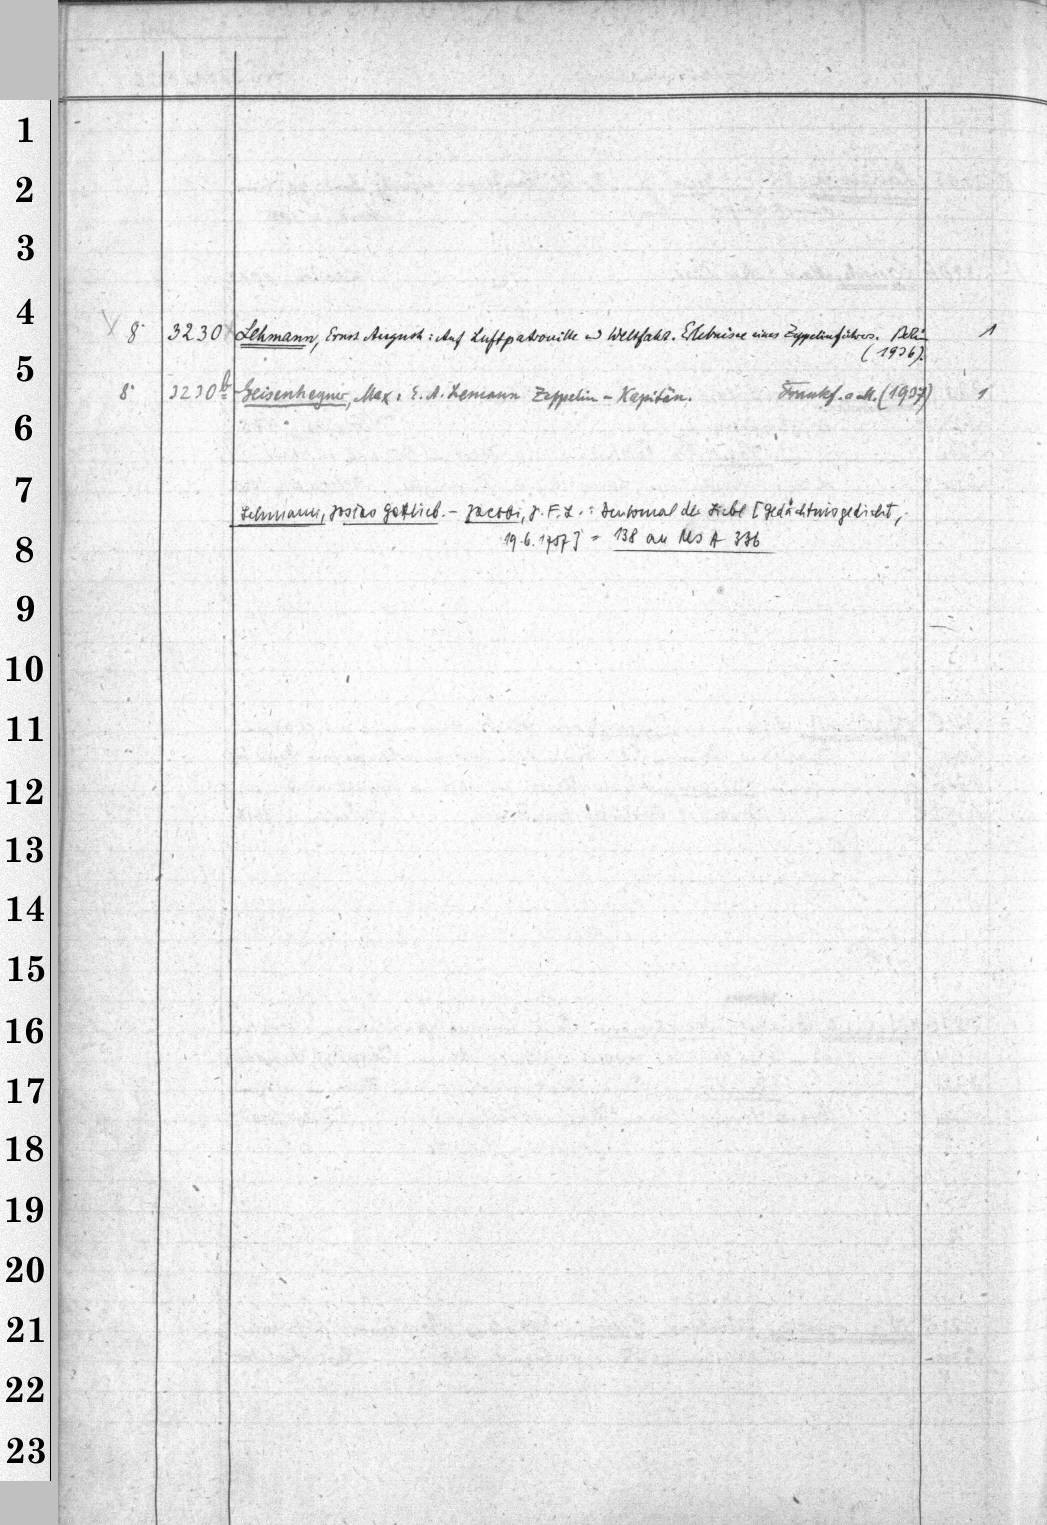 1
2
3
4
8° 3230 Lehmann, Ernst August: Auf Luftpatrouille u Weltfahrt. Erlebnisse eines Zeppelinführers. Berlin 1
(1936).
5
8° 3230b Geisenheyner, Max: E. A. Lemann Zeppelin-Kapitän. Frankf. a.M. (1937) 1
6
7
Lehmann, Josias Gottlieb. - Jacobi, J. F. L.: Denkmal der Liebe [Gedächtnisgedicht,
8
19.6.1757] = 138 an Res A 336
9
10
11
12
13
14
15
16
17
18
19
20
21
22
23